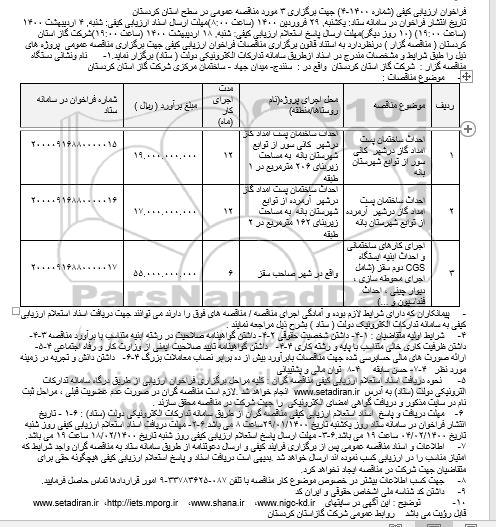 فراخوان ارزیابی کیفی (شماره ۱۴۰۰-۴) جهت برگزاری ۳ مورد مناقصه عمومی در سطح استان کردستان
تاریخ انتشار فراخوان در سامانه ستاد: یکشنبه، ۲۹ فروردین ۱۴۰۰ (ساعت ۸:۰۰)مهلت ارسال اسناد ارزیابی کیفی: شنبه، ۴ اردیبهشت ۱۴۰۰
(ساعت ۱۹:۰۰) (۱۰ روز دیگر)مهلت ارسال پاسخ استعلام ارزیابی کیفی: شنبه، ۱۸ اردیبهشت ۱۴۰۰ (ساعت ۱۹:۰۰)شرکت گاز استان
کردستان ( مناقصه گزار ) درنظردارد به استناد قانون برگزاری مناقصات فراخوان ارزیابی کیفی جهت برگزاری مناقصه عمومی پروژه های
ذیل را طبق شرایط و مشخصات مندرج در اسناد ازطریق سامانه تدارکات الکترونیکی دولت ( ستاد ) برگزار نماید.۱- نام ونشانی دستگاه
مناقصه گزار : شرکت گاز استان کردستان واقع در : سنندج- میدان جهاد - ساختمان مرکزی شرکت گاز استان کردستان
- موضوع مناقصات :
ردیف
موضوع مناقصه
محل اجرای پروژه(نام روستاها/منطقه)
مدت اجرای کار (ماه)
مبلغ برآورد ( ریال )
شماره فراخوان در سامانه ستاد
۱
احداث ساختمان پست امداد گاز درشهر کانی سور از توابع شهرستان بانه
احداث ساختمان پست امداد گاز درشهر کانی سور از توابع شهرستان بانه به مساحت زیربنای ۲۰۶ مترمربع در ۱ طبقه
۱۲
۱۹,۰۰۰,۰۰۰,۰۰۰
۲۰۰۰۰۹۱۶۸۸۰۰۰۰۱۵
۲
احداث ساختمان پست امداد گاز درشهر آرمرده از توابع شهرستان بانه
احداث ساختمان پست امداد گاز درشهر آرمرده از توابع شهرستان بانه به مساحت زیربنای ۱۶۲ مترمربع در ۲ طبقه
۱۲
۱۷,۰۰۰,۰۰۰,۰۰۰
۲۰۰۰۰۹۱۶۸۸۰۰۰۰۱۶
۳
اجرای کارهای ساختمانی و احداث ابنیه ایستگاه CGS دوم سقز (شامل اجرای محوطه سازی ، دیوار چینی ، احداث فنداسیون و ...)
واقع در شهر صاحب سقز
۶
۵۵,۰۰۰,۰۰۰,۰۰۰
۲۰۰۰۰۹۱۶۸۸۰۰۰۰۱۷
- پیمانکاران که دارای شرایط لازم بوده و آمادگی اجرای مناقصه / مناقصه های فوق را دارند می توانند جهت دریافت اسناد استعلام ارزیابی
کیفی به سامانه تدارکات الکترونیک دولت ( ستاد ) بشرح ذیل مراجعه نمایند .
۴- شرایط اولیه متقاضیان : ۴-۱- داشتن شخصیت حقوقی ۴-۲- داشتن گواهینامه صلاحیت در رشته ابنیه متناسب با برآورد مناقصه ۴-۳-
داشتن ظرفیت کاری خالی متناسب با پایه و رشته کاری ۴-۴- داشتن گواهینامه تایید صلاحیت ایمنی از وزارت کار و رفاه اجتماعی ۴-۵-
ارائه صورت های مالی حسابرسی شده جهت مناقصات بابرآورد بیش از ده برابر نصاب معاملات بزرگ ۴-۶- داشتن دانش و تجربه در زمینه
مورد نظر ۴-۷- حسن سابقه ۴-۸- توان مالی و پشتیبانی
۵- نحوه دریافت اسناد استعلام ارزیابی کیفی مناقصه گران : کلیه مراحل برگزاری فراخوان ارزیابی از طریق درگاه سامانه تدارکات
الکترونیکی دولت (ستاد) به آدرس www.setadiran.ir انجام خواهد شد .لازم است مناقصه گران در صورت عدم عضویت قبلی ، مراحل ثبت
نام در سایت مذکور و دریافت گواهی امضای الکترونیکی را جهت شرکت در مناقصه محقق سازند.
۶- مهلت دریافت و پاسخ اسناد استعلام ارزیابی کیفی مناقصه گران از طریق سامانه تدارکات الکترونیکی دولت (ستاد) : ۶-۱- تاریخ
انتشار فراخوان در سامانه ستاد روز یکشنبه تاریخ ۲۹/۰۱/۱۴۰۰ساعت ۸ می باشد.۶-۲- مهلت دریافت اسناد استعلام ارزیابی کیفی روز شنبه
تاریخ ۰۴/۰۲/۱۴۰۰ ساعت ۱۹ می باشد.۶-۳- مهلت ارسال پاسخ استعلام ارزیابی کیفی روز شنبه تاریخ ۱۸/۰۲/۱۴۰۰ ساعت ۱۹ می باشد.
۷- اطلاعات و اسناد مناقصه عمومی پس از برگزاری فرایند کیفی و ارسال دعوتنامه از طریق سامانه ستاد به مناقصه گران واجد شرایط که
امتیاز مناسب را در ارزیابی کسب نموده اند ارسال خواهد شد .بدیهی است دریافت اسناد و پاسخ استعلام ارزیابی کیفی هیچگونه حقی برای
متقاضیان جهت شرکت در مناقصه ایجاد نخواهد کرد.
۸- جهت کسب اطلاعات بیشتر در خصوص موضوع کار مناقصه با تلفن ۰۸۷-۳۳۷۸۳۶۲۵-۹ امور قراردادها تماس حاصل فرمایید.
۹- داشتن کد شناسه ملی اشخاص حقوقی و ایران کد
۱۰- توضیح : این آگهی در سایتهای www.nigc-kd.ir، www.shana.ir، http://iets.mporg.ir، www.setadiran.ir
قابل رؤیت می باشد روابط عمومی شرکت گازاستان کردستان